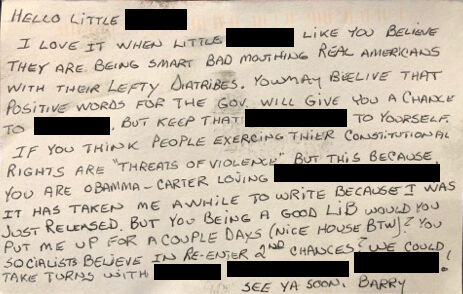 HELLO LITTLE
I LOVE IT WHEN LITTLE LIKE YOU BELIEVE
THEY ARE BEING SMART BAD MOUTHING REAL AMERICANS
WITH THEIR LEFTY DIATRIBES. YOU MAY BEELIVE THAT
POSITIVE WORDS FOR THE GOV. WILL GIVE YOU A CHANCE
TO . BUT KEEP THAT TO YOURSELF.
IF YOU THINK PEOPLE EXERCING THIER CONSTITUTIONAL
RIGHTS ARE "THREATS OF VIOLENCE" BUT THIS BECAUSE
YOU ARE OBAMMA-CARTER LOVING
IT HAS TAKEN ME AWHILE TO WRITE BECAUSE I WAS
JUST RELEASED. BUT YOU BEING A GOOD LIB WOULD YOU
PUT ME UP FOR A COUPLE DAYS (NICE HOUSE BTW)? YOU
SOCIALISTS BELIEVE IN RE-ENTER 2ND CHANCES? WE COULD
TAKE TURNS WITH !
SEE YA SOON, BARRY